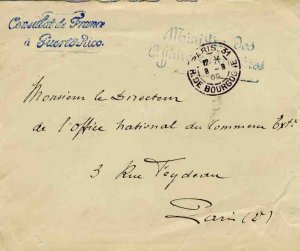 Consulat de France
à Puerto Rico.
Ministère des
Affaires
PARIS. 31
R. DE BOURGOGNE
Monsieur le Directeur
de l'Office national du Commerce Extr
3 Rue Feydeau
Paris (2e)